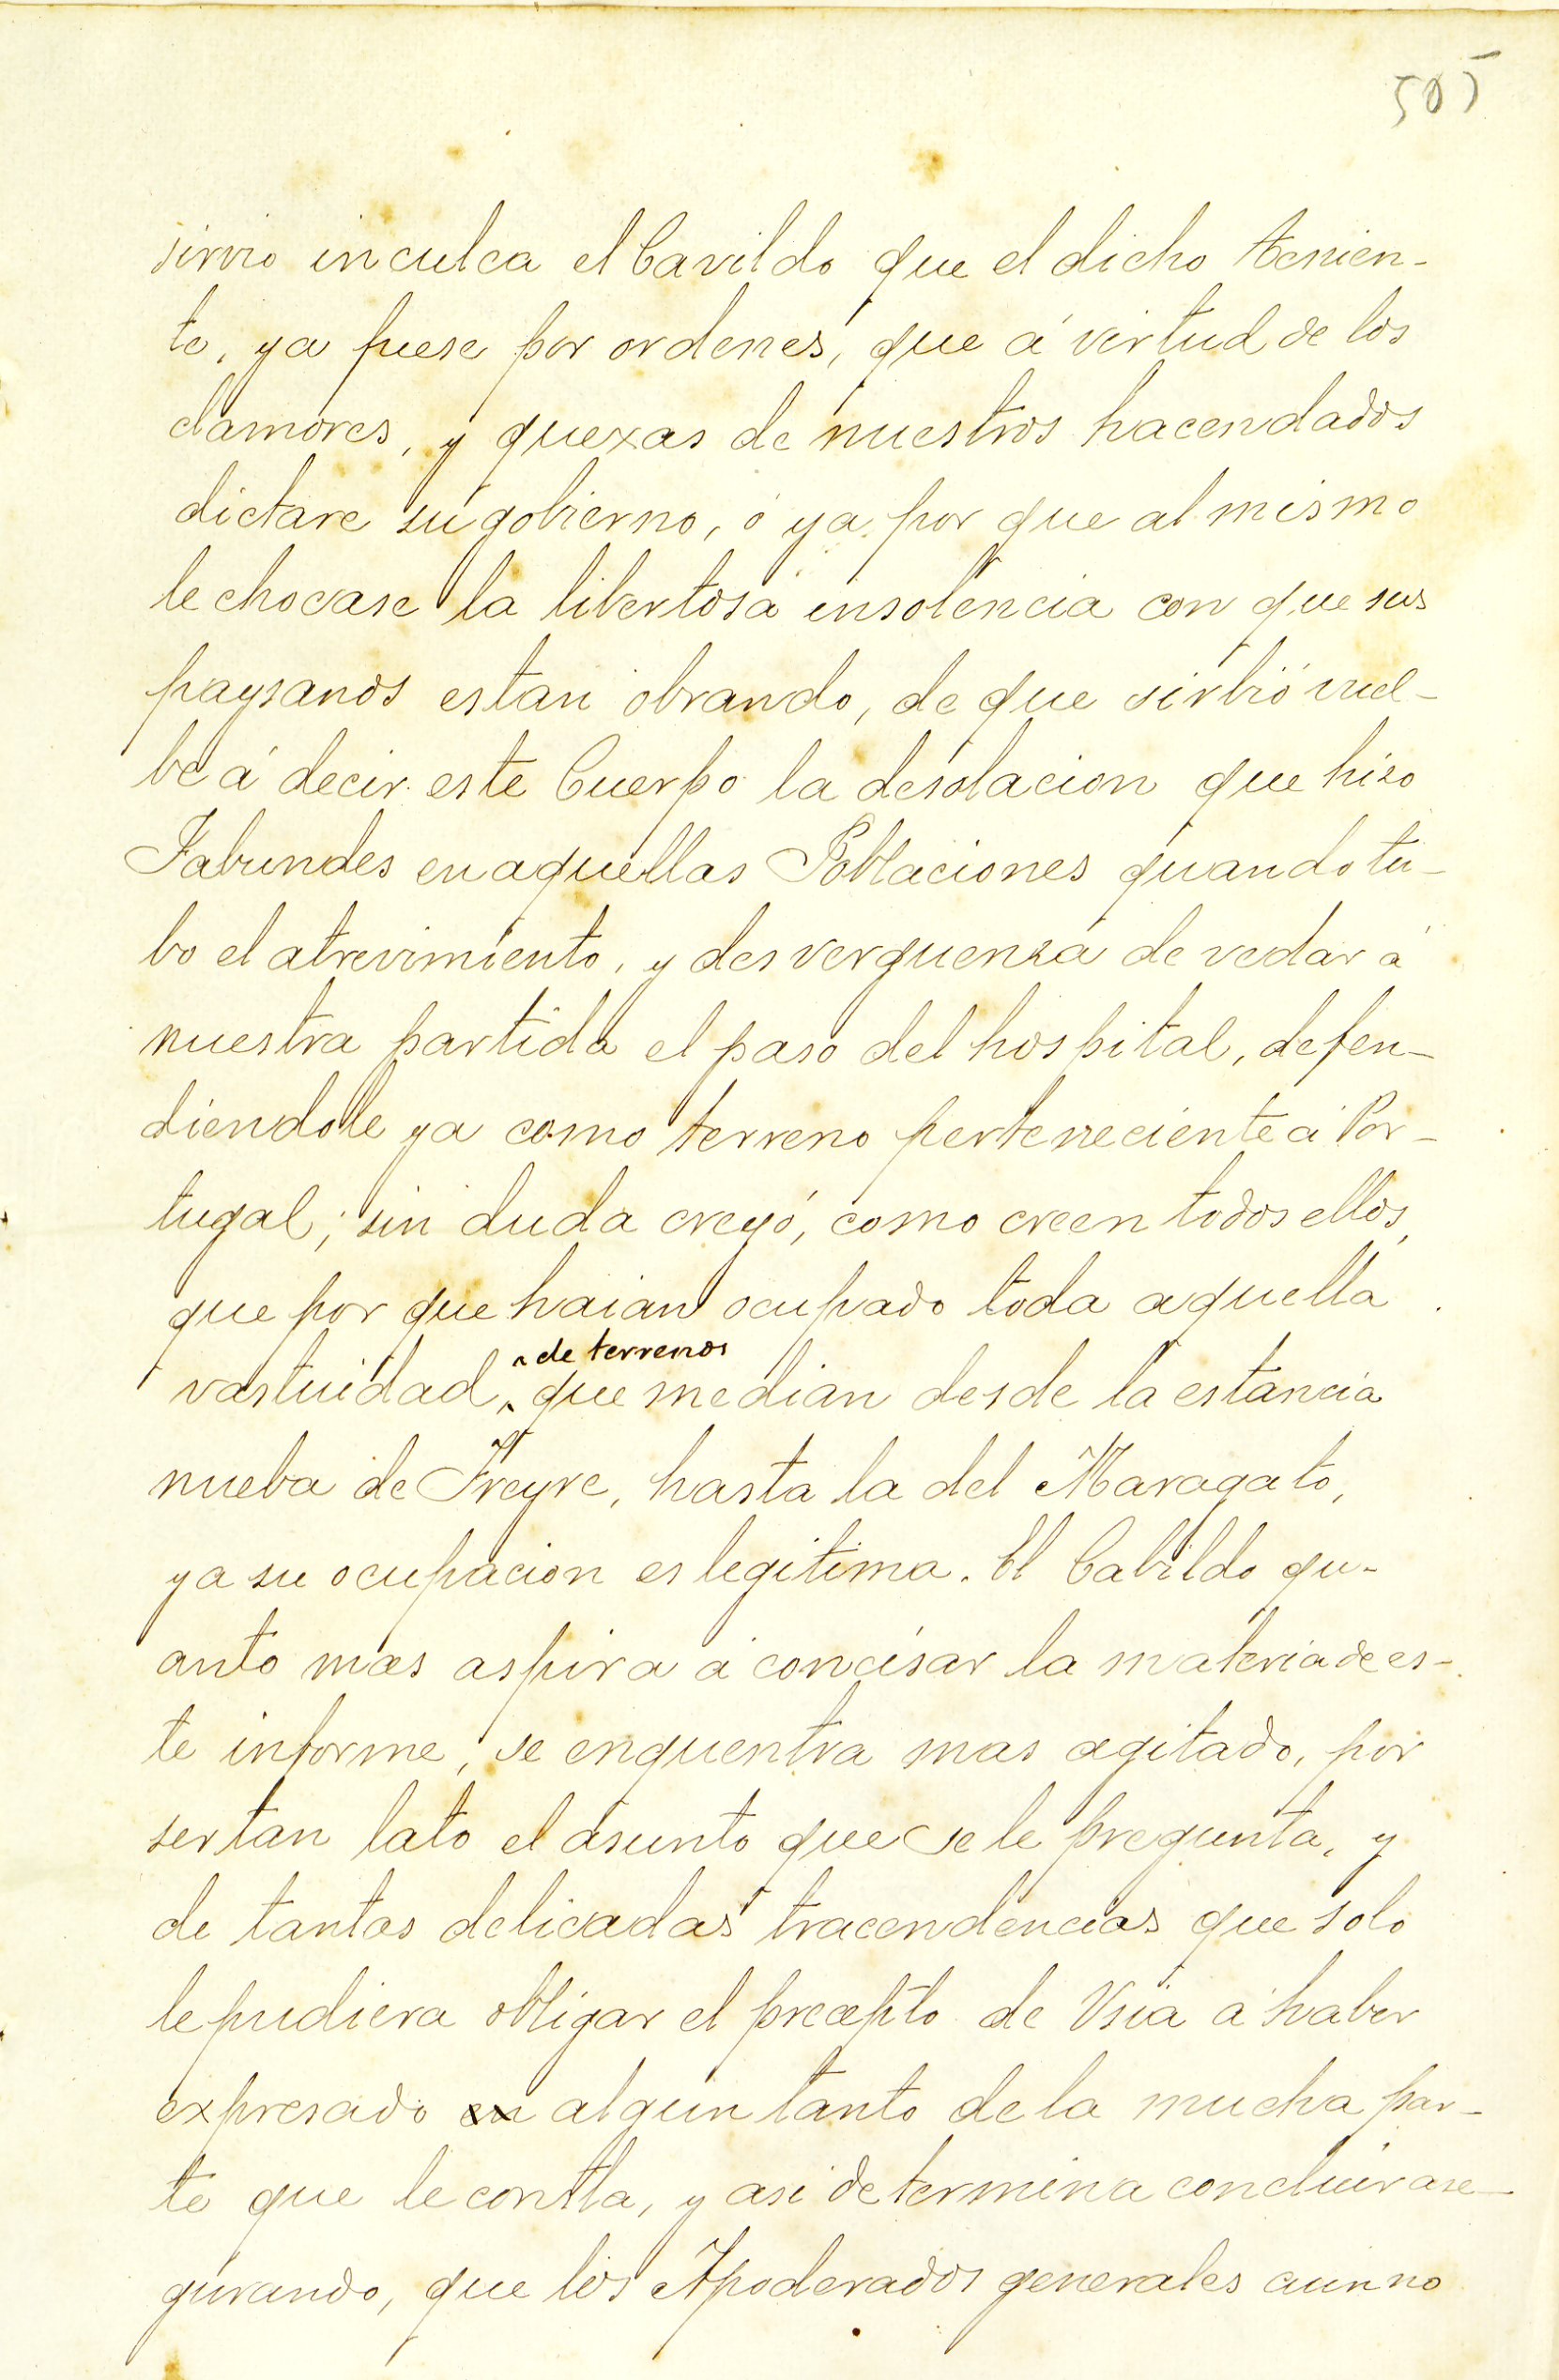 505
sirvio inculca el Cavildo que el dicho tenien-
te, ya fuese por ordenes, que á virtud de los
clamores, y quexas de nuestros hacendados
dictare su gobierno, ó ya por que al mismo
le chocase la libertosa insolencia con que sus
paysanos estan obrando, de que sirbió vuel-
be á decir este Cuerpo la desolacion que hizo
Fabundes en aquellas Poblaciones quando tu-
bo el atrevimiento, y desverguenza de vedar á
nuestra partida el paso del hospital, defen-
diendole ya como terreno perteneciente á Por-
tugal; sin duda creyó, como creen todos ellos,
que por que haian ocupado toda aquella
vastuidad de terrenos que median desde la estancia
nueba de Freyre, hasta la del Maragato,
ya su ocupacion es legitima. El Cabildo qu-
anto mas aspira á concisar la materia de es-
te informe, se enquentra mas agitado, por
ser tan lato el asunto que se le pregunta, y
de tantas delicadas tracendencias que solo
le pudiera obligar el precepto de Vsia á haber
expresado en algun tanto de la mucha par-
te que le contla, y asi determina concluir ase-
gurando, que los Apoderados generales aun no